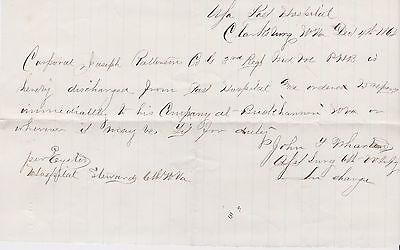 Post Hospital
Clarksburg W Va Dec 4th 186
Corporal Joseph Patterson Co G 2nd Regt is
hereby discharged from Post Hospital and ordered to report
immediately to his Company at Buckhannon W Va or
wherever it may be, fit for duty
John T Wharton
Asst Surg 6th W Va Infty
in charge
per Eyster
Hospital Steward 6th W Va